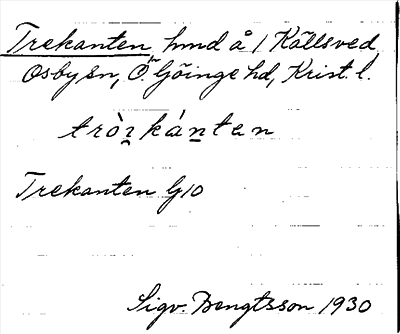 Trekanten, hmd å 1 Källsved,
Osby sn, Ö. Göinge hd, Krist. l.
trò̱ɪkán̠ten
Trekanten G10
Sigv. Bengtsson 1930